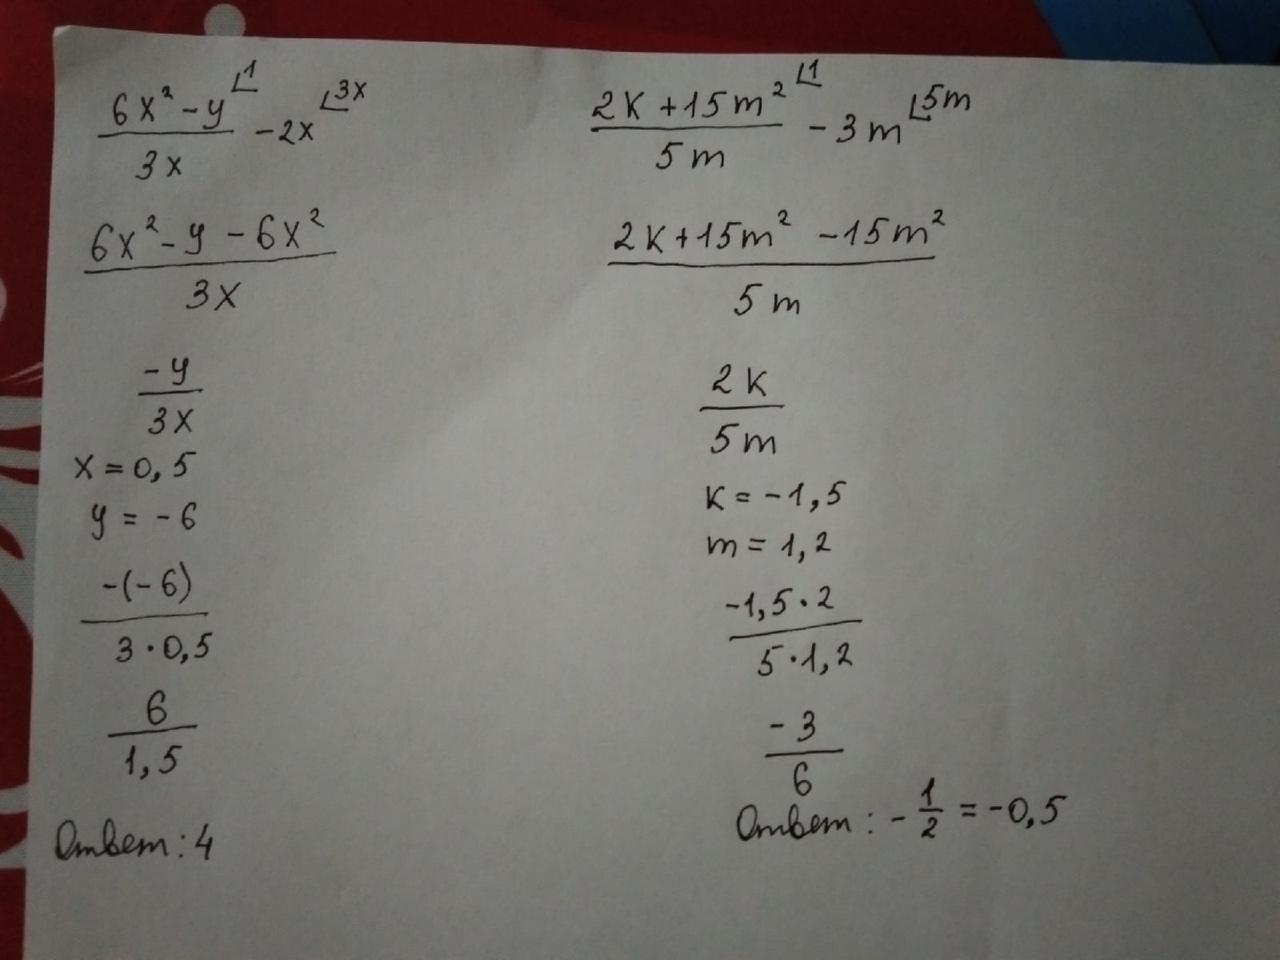 (6x² - y)/(3x) ⌊1 - 2x ⌊3x
(6x² - y - 6x²)/(3x)
-y/(3x)
x = 0,5
y = -6
-(-6)/(3·0,5)
6/1,5
Ответ: 4
(2к + 15m²)/(5m) ⌊1 - 3m ⌊5m
(2к + 15m² - 15m²)/(5m)
2к/(5m)
к = -1,5
m = 1,2
(-1,5·2)/(5·1,2)
-3/6
Ответ: -1/2 = -0,5